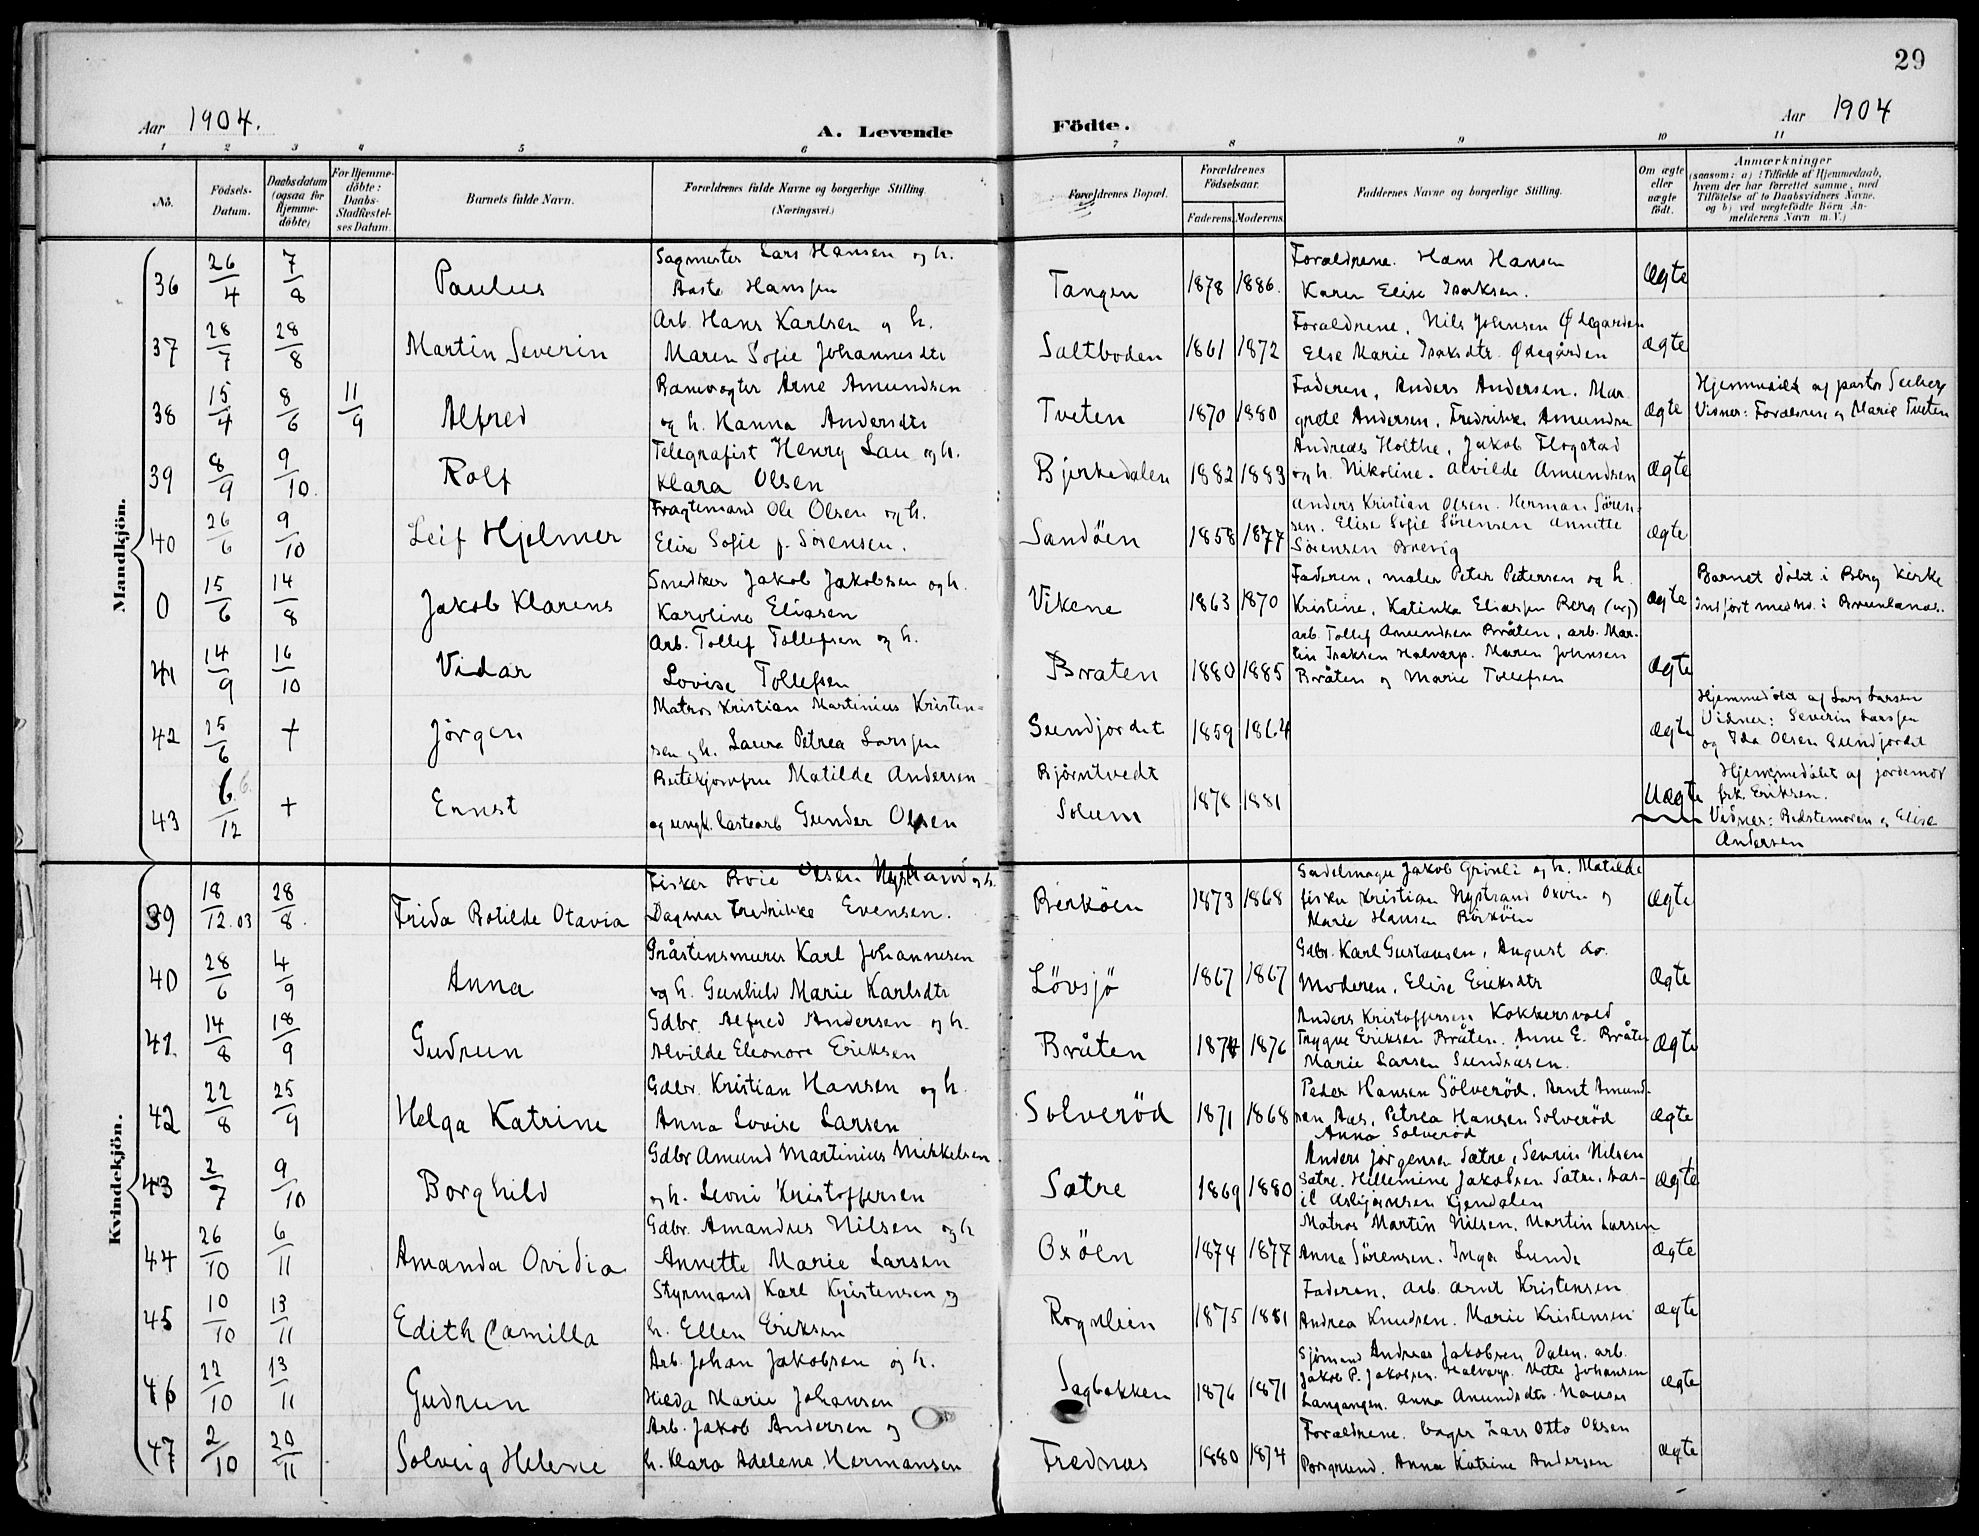 29
Aar 1904.
A. Levende Födte.
Aar 1904
1 2 3 4 5 6 7 8 9 10 11
No.
Födsels-Datum.
Daabsdatum (ogsaa for Hjemme-döbte)
For Hjemme-döbte: Daabs-Stadfæstel-ses Datum.
Barnets fulde Navn.
Forældrenes fulde Navne og borgerlige Stilling.
(Næringsvei.)
Forældrenes Bopæl.
Forældrenes Födselsaar.
Faderens. Moderens.
Faddernes Navne og borgerlige Stilling.
Om ægte eller uægte födt.
Anmærkninger
(saasom: a) i Tilfælde af Hjemmedaab, hvem der har forrettet samme, med Tilföielse af to Daabsvidners Navne, og b) ved uægtefödte Börn An-melderens Navn m. V.)
Mandkjön.
36 26/4 7/8 Paulus
Sagmester Lars Hansen og h.
Aaste Hanssen
Tangen 1878 1886.
Forældrene. Hans Hansen
Karen Elise Isaksen.
Ægte
37 28/7 28/8 Martin Severin
Arb. Hans Karlsen og h.
Maren Sofie Johannesdtr
Saltboden 1861 1872
Forældrene, Nils Johnsen Ødegården
Else Marie Isaksdtr. Ødegården
Ægte
38 15/4 8/6 11/9 Alfred
Banevogter Arne Amundsen
og h. Hanna Andersdtr
Tveten 1870 1880
Faderen, Anders Andersen. Mar
grete Andersen, Fredrikke Amundsen
Ægte
Hjemmedöbt af pastor Seeberg
Vidner: Forældrene og Marie Tveten
39 8/9 9/10. Rolf
Telegrafist Henry Lau og h.
Klara Olsen
Bjerkedalen 1882 1883
Andreas Holthe, Jakob Flogstad
og h. Nikoline. Alvilde Amundsen
Ægte
40 26/6 9/10 Leif Hjelmer
Fragtemand Ole Olsen og h.
Elise Sofie f. Sörensen.
Sandöen 1858 1877
Anders Kristian Olsen. Herman Sören-
sen. Elise Sofie Sörensen Annette
Sörensen Brevig
Ægte
0 15/6 14/8 Jakob Klarens
Snedker Jakob Jakobsen og h.
Karoline Eliasen
Vikene 1863 1870
Faderen, maler Peter Petersen og h.
Kristine, Katinka Eliassen Berg
Ægte
Barnet döbt i Berg Kirke
Indfört med no. i Brunlanes.
41 14/9 16/10 Vidar
Arb. Tollef Tollefsen og h.
Lovise Tollefsen
Braten 1880 1885
arb. Tollef Amundsen Bråten, arb. Mar-
tin Isaksen Halvarp. Maren Johnsen
Bråten og Marie Tollefsen
Ægte
42 15/6 + Jörgen
Matros Kristian Martinius Kristen-
sen og h. Laura Petrea Larssen
Sundjordet 1859 1864
Ægte
Hjemmedöbt af Lars Larsen
Vidner: Severin Larssen
og Ida Olsen Sundjordet
43 6/12 + Ernst
Matilde Andersen
og ungk. lastearb Gunder Olsen
Björntvedt
Solum 1878 1881
Uægte
Hjemmedöbt af jordemor
frk. Eriksen.
Vidner: Bedstemoren og Elise
Andersen
Kvindekjön.
39 18/12.03 28/8. Frida Botilde Otavia
Fisker Boie Olsen Nystrand og h.
Dagmar Fredrikke Evensen.
Berköen 1873 1868
Sadelmager Jakob Grinli og h. Matilde
fisker Kristian Nystrand Oxöen og
Marie Hansen Börköen
Ægte
40 28/6 4/9 Anna
Gråstensmurer Karl Johannesen
og h. Gunhild Marie Karlsdtr
Lövsjö 1867 1867
Gdbr. Karl Gustavsen, August do.
Moderen, Elise Eriksdtr
Ægte
41. 14/8 18/9 Gudrun
Gdbr. Alfred Andersen og h.
Alvilde Eleonore Eriksen
Bråten 1874 1876
Anders Kristoffersen Kokkersvold
Trygve Eriksen Bråten. Anne E. Bråten
Marie Larsen Sundsåsen.
Ægte
42 22/8 25/9 Helga Katrine
Gdbr. Kristian Hansen og h.
Anna Lovise Larsen
Solveröd 1871 1868
Peder Hansen Sölveröd. Arnt Amund-
sen Aas, Petrea Hansen Solveröd
Anna Solveröd
Ægte
43 2/7 9/10 Borghild
Gdbr Amund Martinius Mikkelsen
og h. Leoni Kristoffersen
Sætre 1869 1880
Anders Jörgensen Sætre, Severin Nilsen
Sætre. Hellemine Jakobsen Sætre,
Kjendalen
Ægte
44 26/10 6/11 Amanda Ovidia
Gdbr. Amandus Nilsen og h
Annette Marie Larsen
Oxöen 1874 1877
Matros Martin Nilsen, Martin Larsen
Anna Sörensen. Inga Lunde
Ægte
45 10/10 13/11 Edith Camilla
Styrmand Karl Kristensen og
h. Ellen Eriksen
Rognlien 1875 1881
Faderen, Arb. Arnt Kristensen
Andrea Knudsen. Marie Kristensen
Ægte
46 22/10 13/11 Gudrun
Arb. Johan Jakobsen og h.
Hilda Marie Johansen
Sagbakken 1876 1871
Sjömand Andreas Jakobsen Dalen, arb.
Jakob P. Jakobsen. Halvarp. Mette Johansen
Langangen. Anna Amundsdtr
Ægte
47 2/10 20/11 Solveig Helene
Arb. Jakob Andersen og
h. Klara Adelene Hermansen
Frednæs 1880 1874
Forældrene. bager Lars Otto Olsen
Porsgrund. Anna Katrine Andersen
Ægte